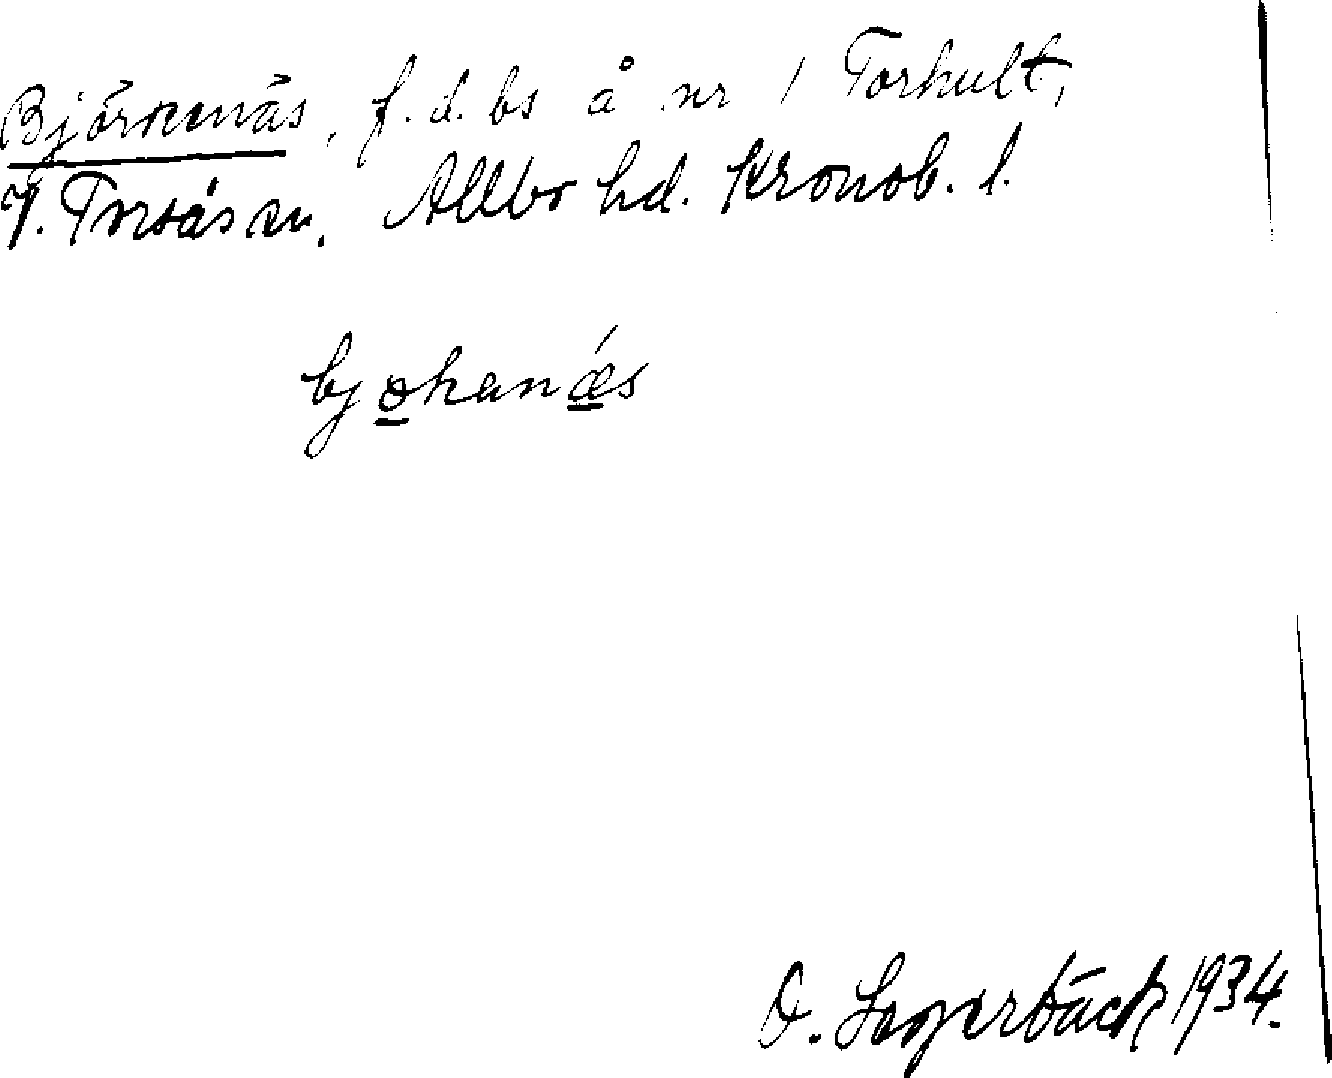 Björkenäs, f.d. bs å nr 1 Torhult,
V. Torsås sn. Allbo hd. Kronob. l.
bjøhkanæ´s
O. Lagerbäck 1934.